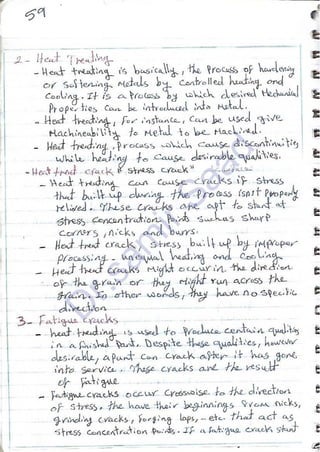 59
2- Heat Treating
- Heat treating is basically, the Process of hardening
or Softening Metals by controlled heating and
Cooling. It is a Process by which desired Mechanical
Properties can be introduced into Metal.
- Heat treating, for instance, can be used give
Machineability to Metal to be Machined.
- Heat treating, Process which cause discontinuities
while heating to cause desirable qualities.
- Heat treat crack & stress crack"
- Heat treating can cause cracks if stress
that built up during the process isn't properly
relived. These cracks are apt to start at
stress concentration Points such as sharp
corners, nicks and burrs.
- Heat treat crack, stress built up by improper
processing - unequal heating and Cooling
- Heat treat cracks Might occur in the direction
of the grain or they might run across the
grain In other words, they have no specific
direction
3- Fatigue cracks
- heat treating is used to Produce certain qualities
in a finished part. Despite these qualities, however
desirable, a part can crack after it has gone
into service. These cracks are the result
of fatigue
- Fatigue cracks occur crosswise to the direction
of stress. the have their beginnings from nicks,
grinding cracks, forging laps, - etc. that act as
stress concentration points. If a fatigue crack start